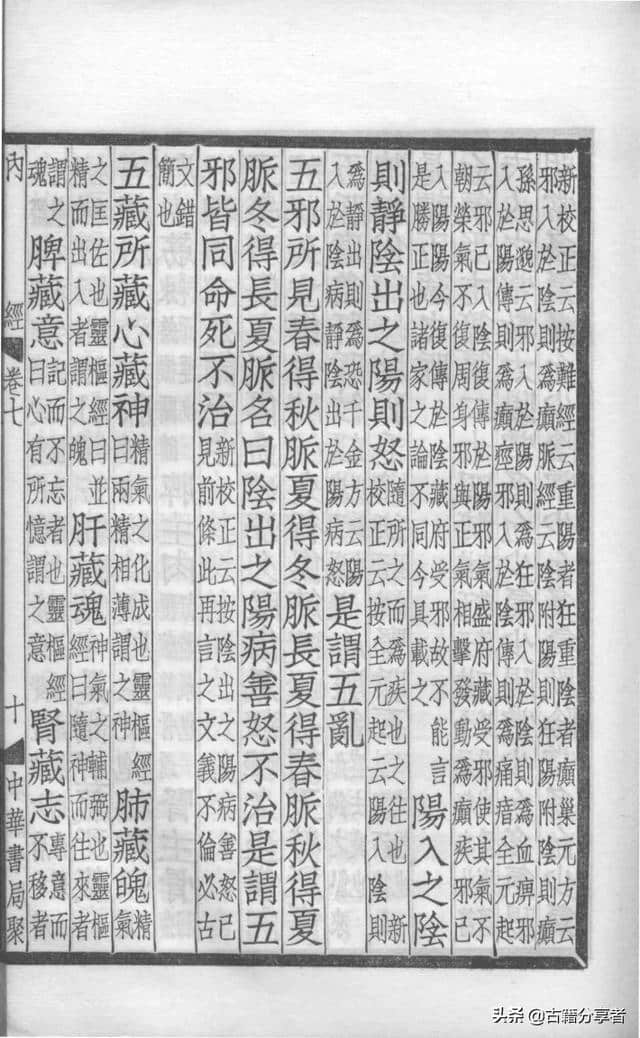 新校正云按難經云重陽者狂重陰者癲巢元方云
邪入於陰則爲癲脈經云陰附陽則狂陽附陰則癲
孫思邈云邪入於陽則爲狂邪入於陰則爲血痹邪
入於陽傳則爲癲痙邪入於陰傳則爲痛瘖全元起
云邪已入陰復傳於陽邪氣盛府藏受邪使其氣不
朝榮氣不復周身邪與正氣相擊發動爲癲疾邪已
入陽陽今復傳於陰藏府受邪故不能言
是勝正也諸家之論不同今具載之
陽入之陰
則靜陰出之陽則怒
隨所之而爲疾也之往也新
校正云按全元起云陽入陰則
爲靜出則爲恐千金方云陽
入於陰病靜陰出於陽病怒
是謂五亂
五邪所見春得秋脈夏得冬脈長夏得春脈秋得夏
脈冬得長夏脈名曰陰出之陽病善怒不治是謂五
邪皆同命死不治
新校正云按陰出之陽病善怒已
見前條此再言之文義不倫必古
文錯
簡也
五藏所藏心藏神
精氣之化成也靈樞經
曰兩精相薄謂之神
肺藏魄
精
氣
之匡佐也靈樞經曰並
精而出入者謂之魄
肝藏魂
神氣之輔弼也靈樞
經曰隨神而往來者
謂之
魂
脾藏意
記而不忘者也靈樞經
曰心有所憶謂之意
腎藏志
專意而
不移者
內經 卷七 十 中華書局聚
头条 @古籍分享者